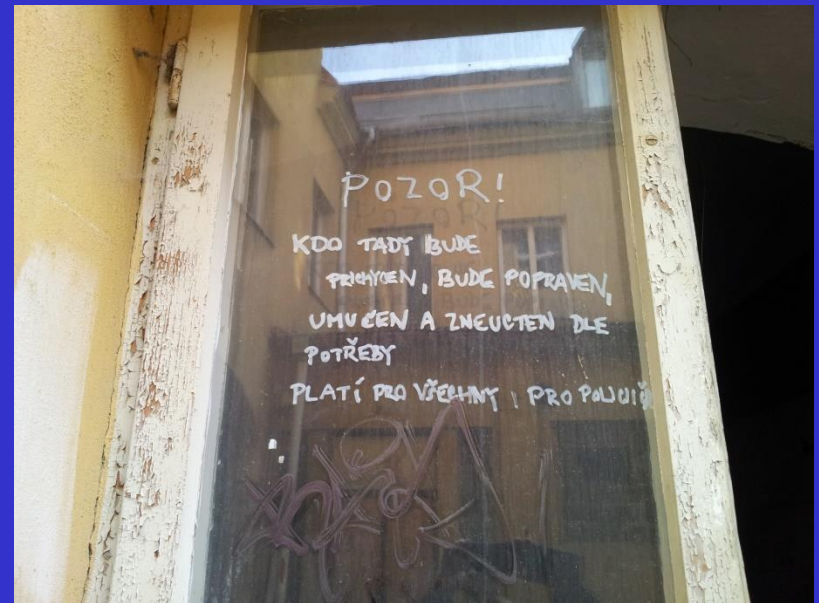 POZOR!
KDO TADY BUDE
PŘICHYCEN, BUDE POPRAVEN,
UMUČEN A ZNEUCTEN DLE
POTŘEBY
PLATÍ PRO VŠECHNY I PRO